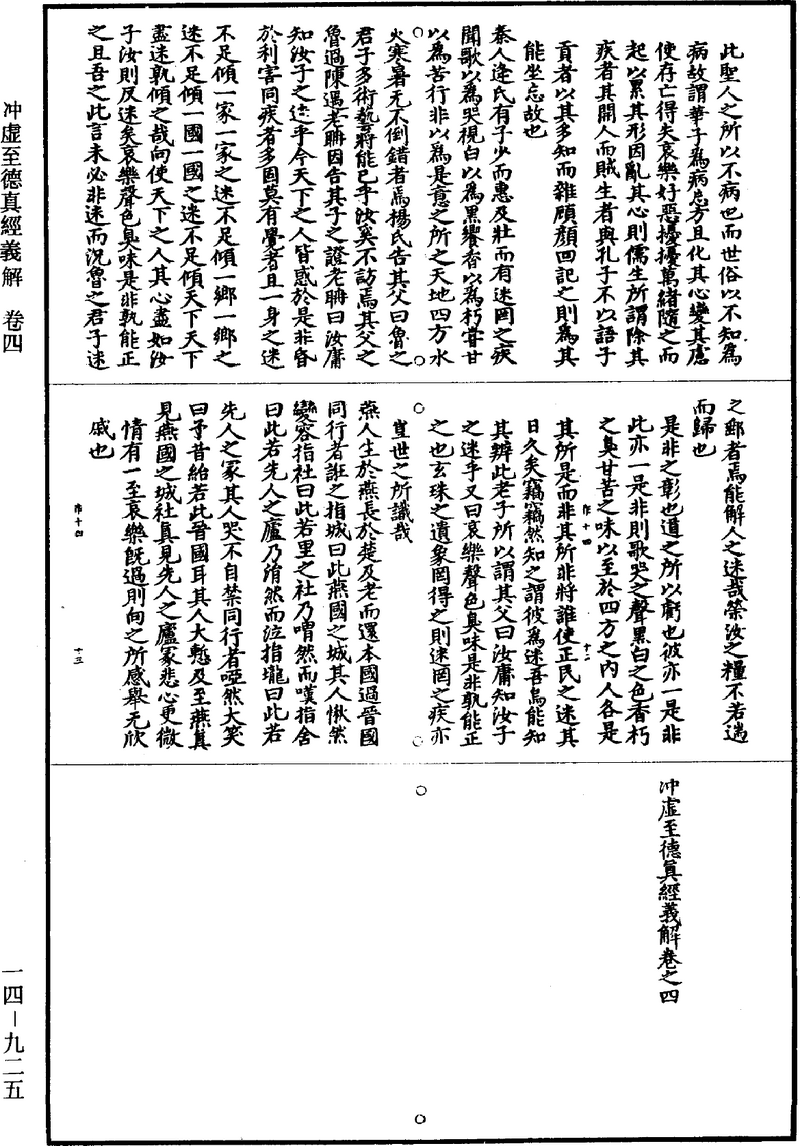 此聖人之所以不病也而世俗以不知為
病故謂華子為病忘方且化其心變其慮
使存亡得失哀樂好惡擾擾萬緒隨之而
起以累其形因亂其心則儒生所謂除其
疾者其開人而賊生者與孔子不以語子
貢者以其多知而雜頋顏回記之則為其
能坐忘故也
秦人逄氏有子少而惠及壯而有迷罔之疾
聞歌以為哭視白以為黑饗香以為朽嘗甘
以為苦行非以為是意之所之天地四方水
火寒暑无不倒錯者焉楊氏告其父曰魯之
君子多術藝將能已乎汝奚不訪焉其父之
魯過陳遇老聃因告其子之證老聃曰汝庸
知汝子之迷乎今天下之人皆惑於是非昏
於利害同疾者多固莫有覺者且一身之迷
不足傾一家一家之迷不足傾一鄉一鄉之
迷不足傾一國一國之迷不足傾天下天下
盡迷孰傾之哉向使天下之人其心盡如汝
子汝則反迷矣哀樂聲色臭味是非孰能正
之且吾之此言未必非迷而況魯之君子迷
之郵者焉能解人之迷哉榮汝之糧不若遄
而歸也
是非之彰也道之所以虧也彼亦一是非
此亦一是非則歌哭之聲黑白之色香朽
之臭甘苦之味以至於四方之內人各是
其所是而非其所非將誰使正民之迷其
日久矣竊竊然知之謂彼為迷吾烏能知
其辨此老子所以謂其父曰汝庸知汝子
之迷乎又曰哀樂聲色臭味是非孰能正
之也玄珠之遺象罔得之則迷罔之疾亦
豈世之所識哉
燕人生於燕長於楚及老而還本國過晉國
同行者誑之指城曰此燕國之城其人愀然
變容指社曰此若里之社乃喟然而嘆指舍
曰此若先人之廬乃涓然而泣指壠曰此若
先人之冢其人哭不自禁同行者啞然大笑
曰予昔紿若此晉國耳其人大慙及至燕真
見燕國之城社真見先人之廬冢悲心更微
情有一至哀樂旣過則向之所感舉无欣
戚也
冲虛至德真經義解卷之四
冲虛至德真經義解 卷四
一四－九二五